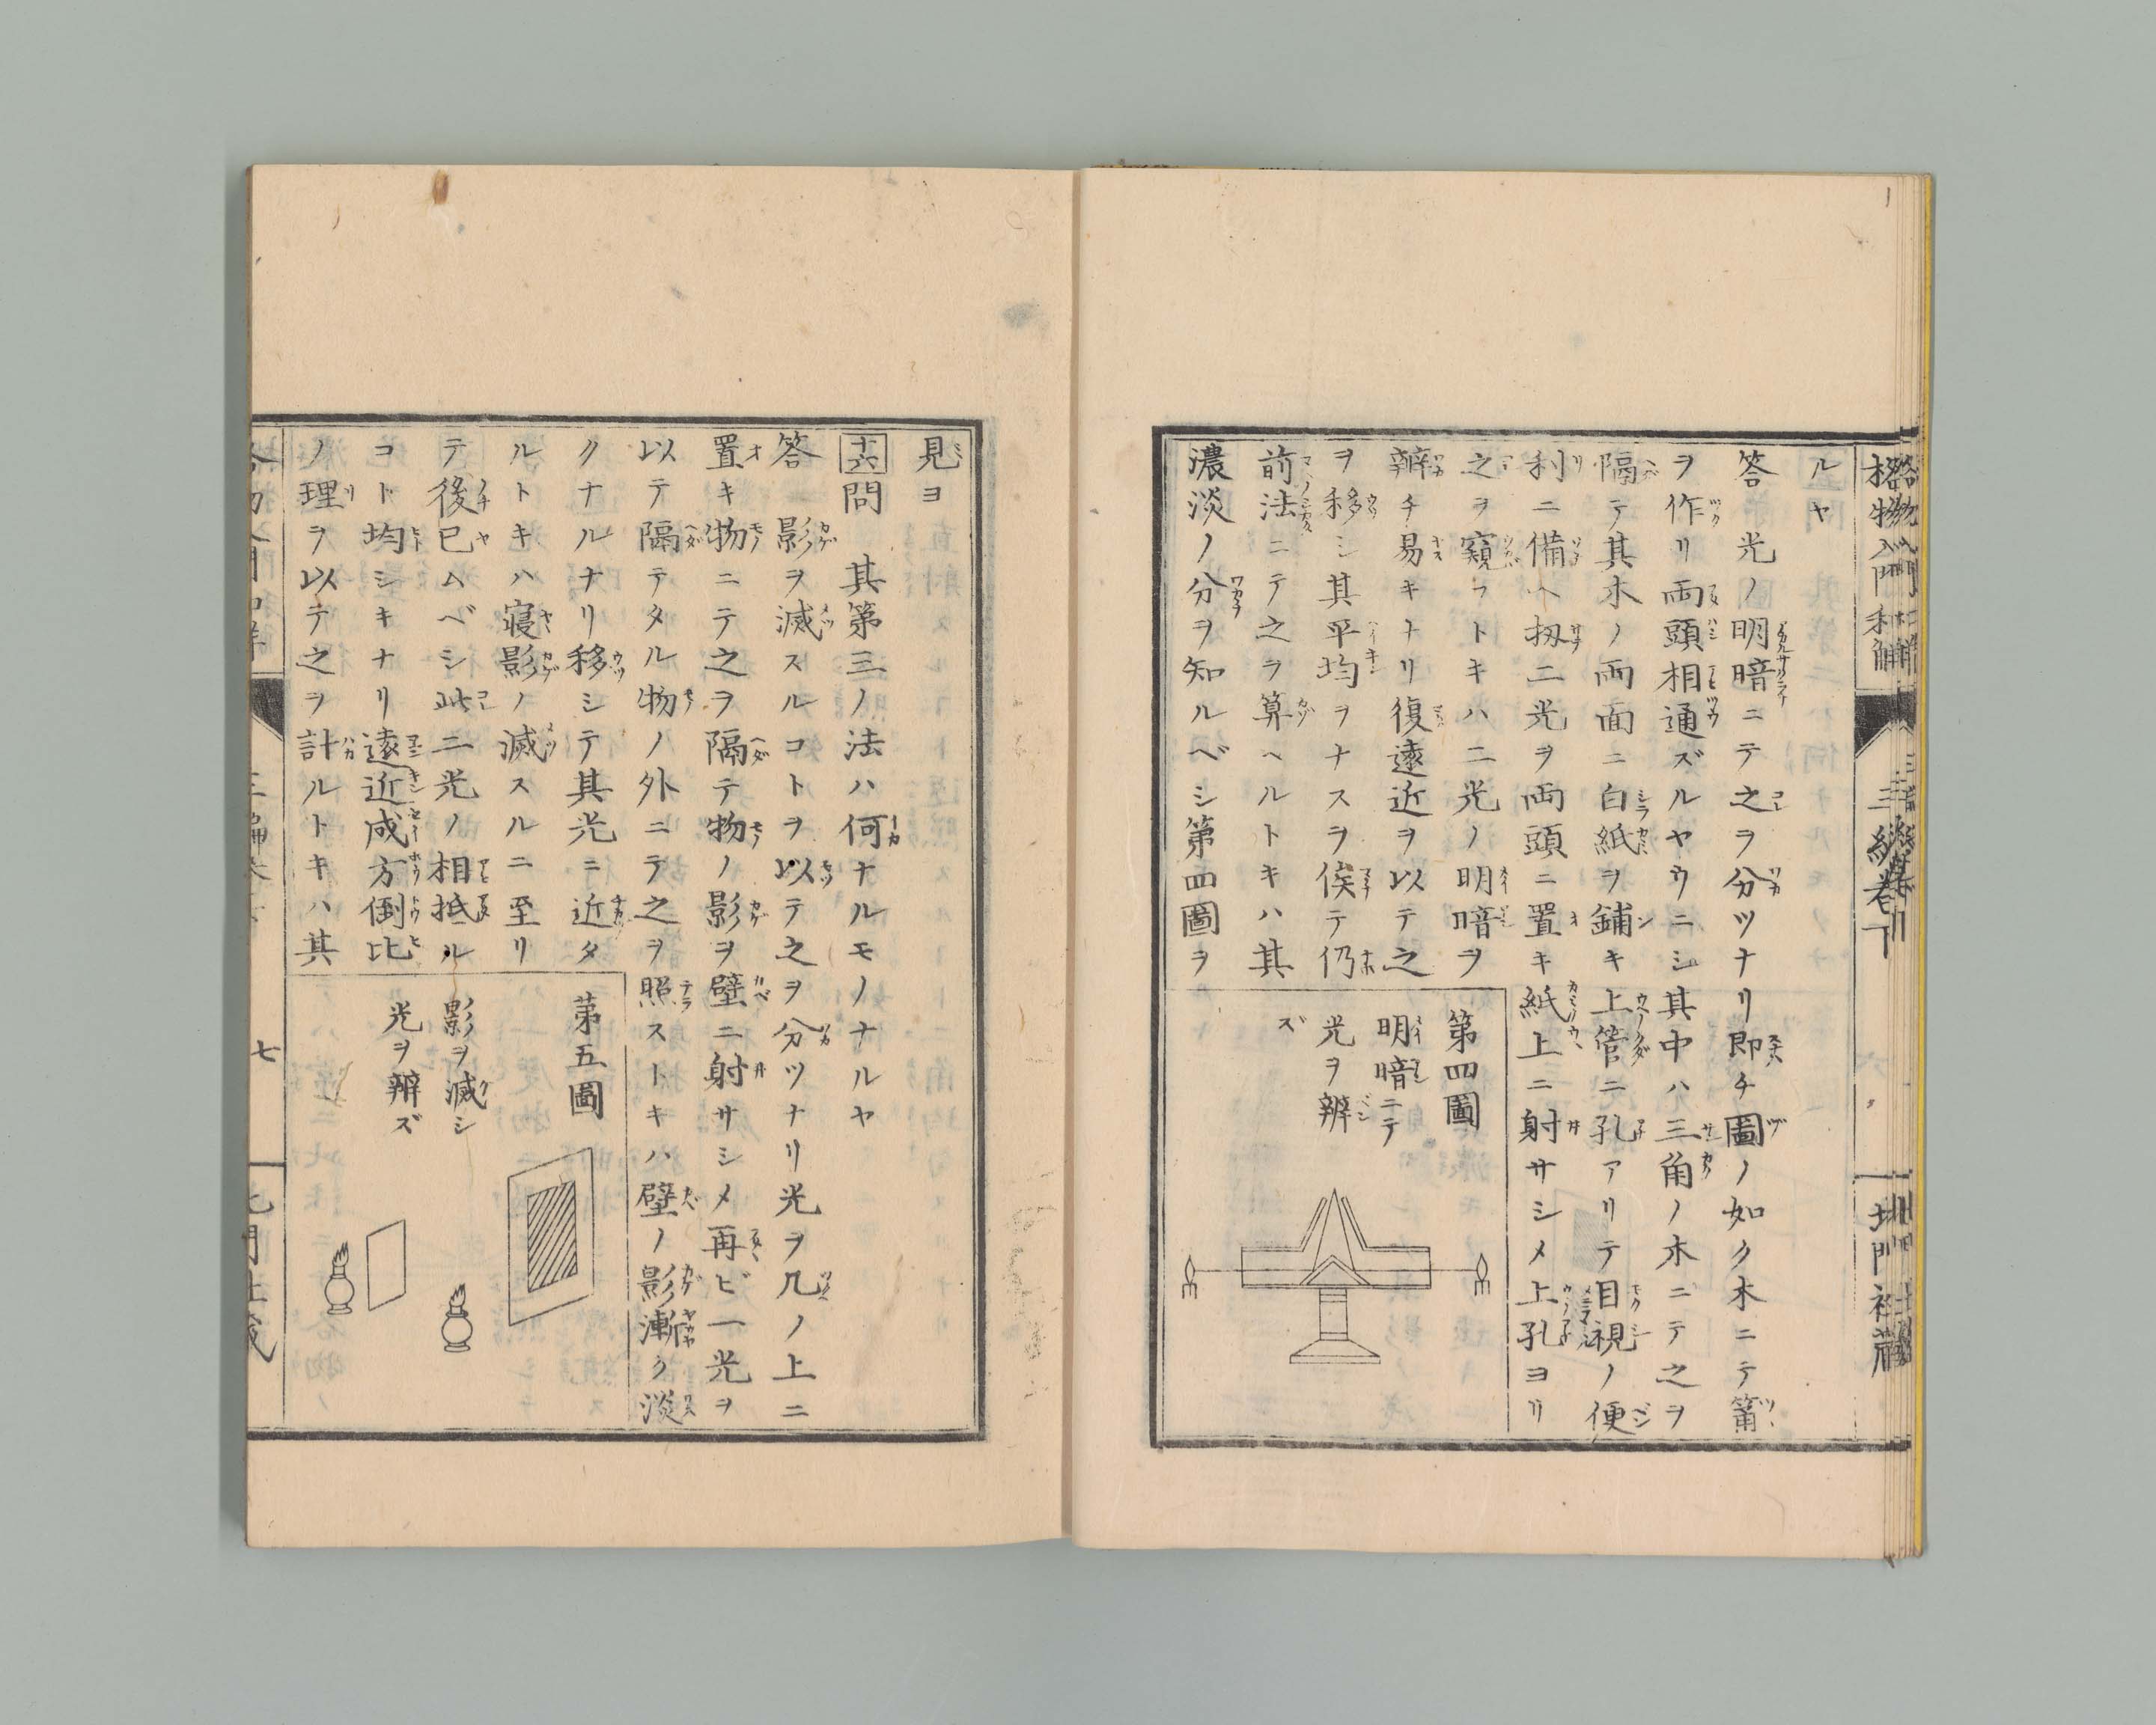 格物入門和解
三編卷下
北門社藏
ルヤ
答 光ノ明暗ニテ之ヲ分ツナリ即チ圖ノ如ク木ニテ筩
ヲ作リ両頭相通ズルヤウニシ其中ハ三角ノ木ニテ之ヲ
隔テ其木ノ両面ニ白紙ヲ鋪キ上管ニ孔アリテ目視ノ便
利ニ備ヘ扨二光ヲ両頭ニ置キ紙上ニ射サシメ上孔ヨリ
之ヲ窺フトキハ二光ノ明暗ヲ
辨チ易キナリ復遠近ヲ以テ之
ヲ移シ其平均ヲナスヲ俟テ仍
前法ニテ之ヲ算ヘルトキハ其
濃淡ノ分ヲ知ルベシ第四圖ヲ
第四圖
明暗ニテ
光ヲ辨
ズ
見ヨ
十六問 其第三ノ法ハ何ナルモノナルヤ
答 影ヲ滅スルコトヲ以テ之ヲ分ツナリ光ヲ几ノ上ニ
置キ物ニテ之ヲ隔テ物ノ影ヲ壁ニ射サシメ再ビ一光ヲ
以テ隔テタル物ノ外ニテ之ヲ照ストキハ壁ノ影漸ク淡
クナルナリ移シテ其光ニ近タ
ルトキハ寝影ノ滅スルニ至リ
テ後已ムベシ此二光ノ相抵ル
コト均シキナリ遠近成方倒比
ノ理ヲ以テ之ヲ計ルトキハ其
第五圖
影ヲ滅シ
光ヲ辨ズ
七